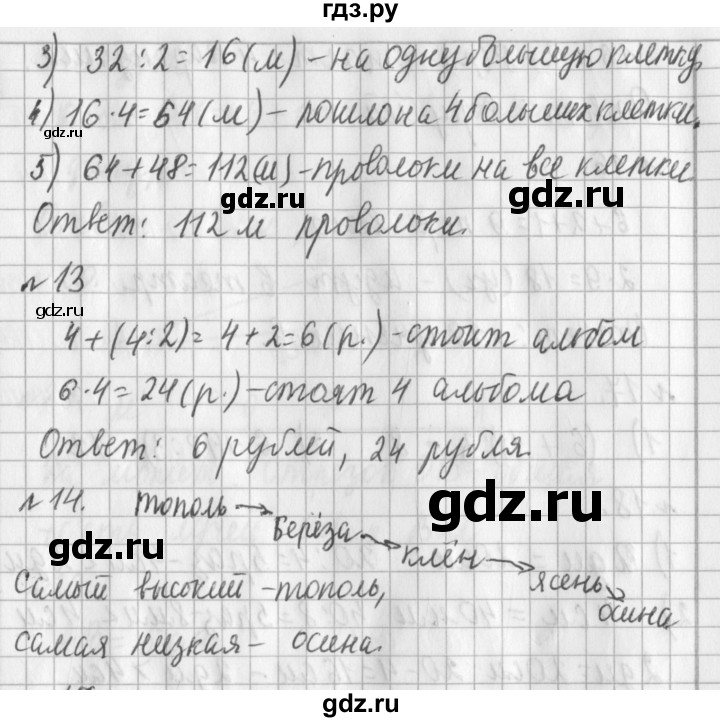 гдз.ру
3) 32:2=16(м) – на одну большую клетку,
4) 16·4=64(м) – пошло на 4 больших клетки.
5) 64+48=112(м) – проволоки на все клетки
gdz.ru
gdz.ru
Ответ: 112 м проволоки.
№13
gdz.ru
4+(4:2)=4+2=6(р.) – стоит альбом
6·4=24(р.) – стоят 4 альбома
Ответ: 6 рублей, 24 рубля.
№14. тополь → берёза → клён → ясень → осина
gdz.ru
gdz.ru
Самый высокий – тополь,
самая низкая – осина.
gdz.ru